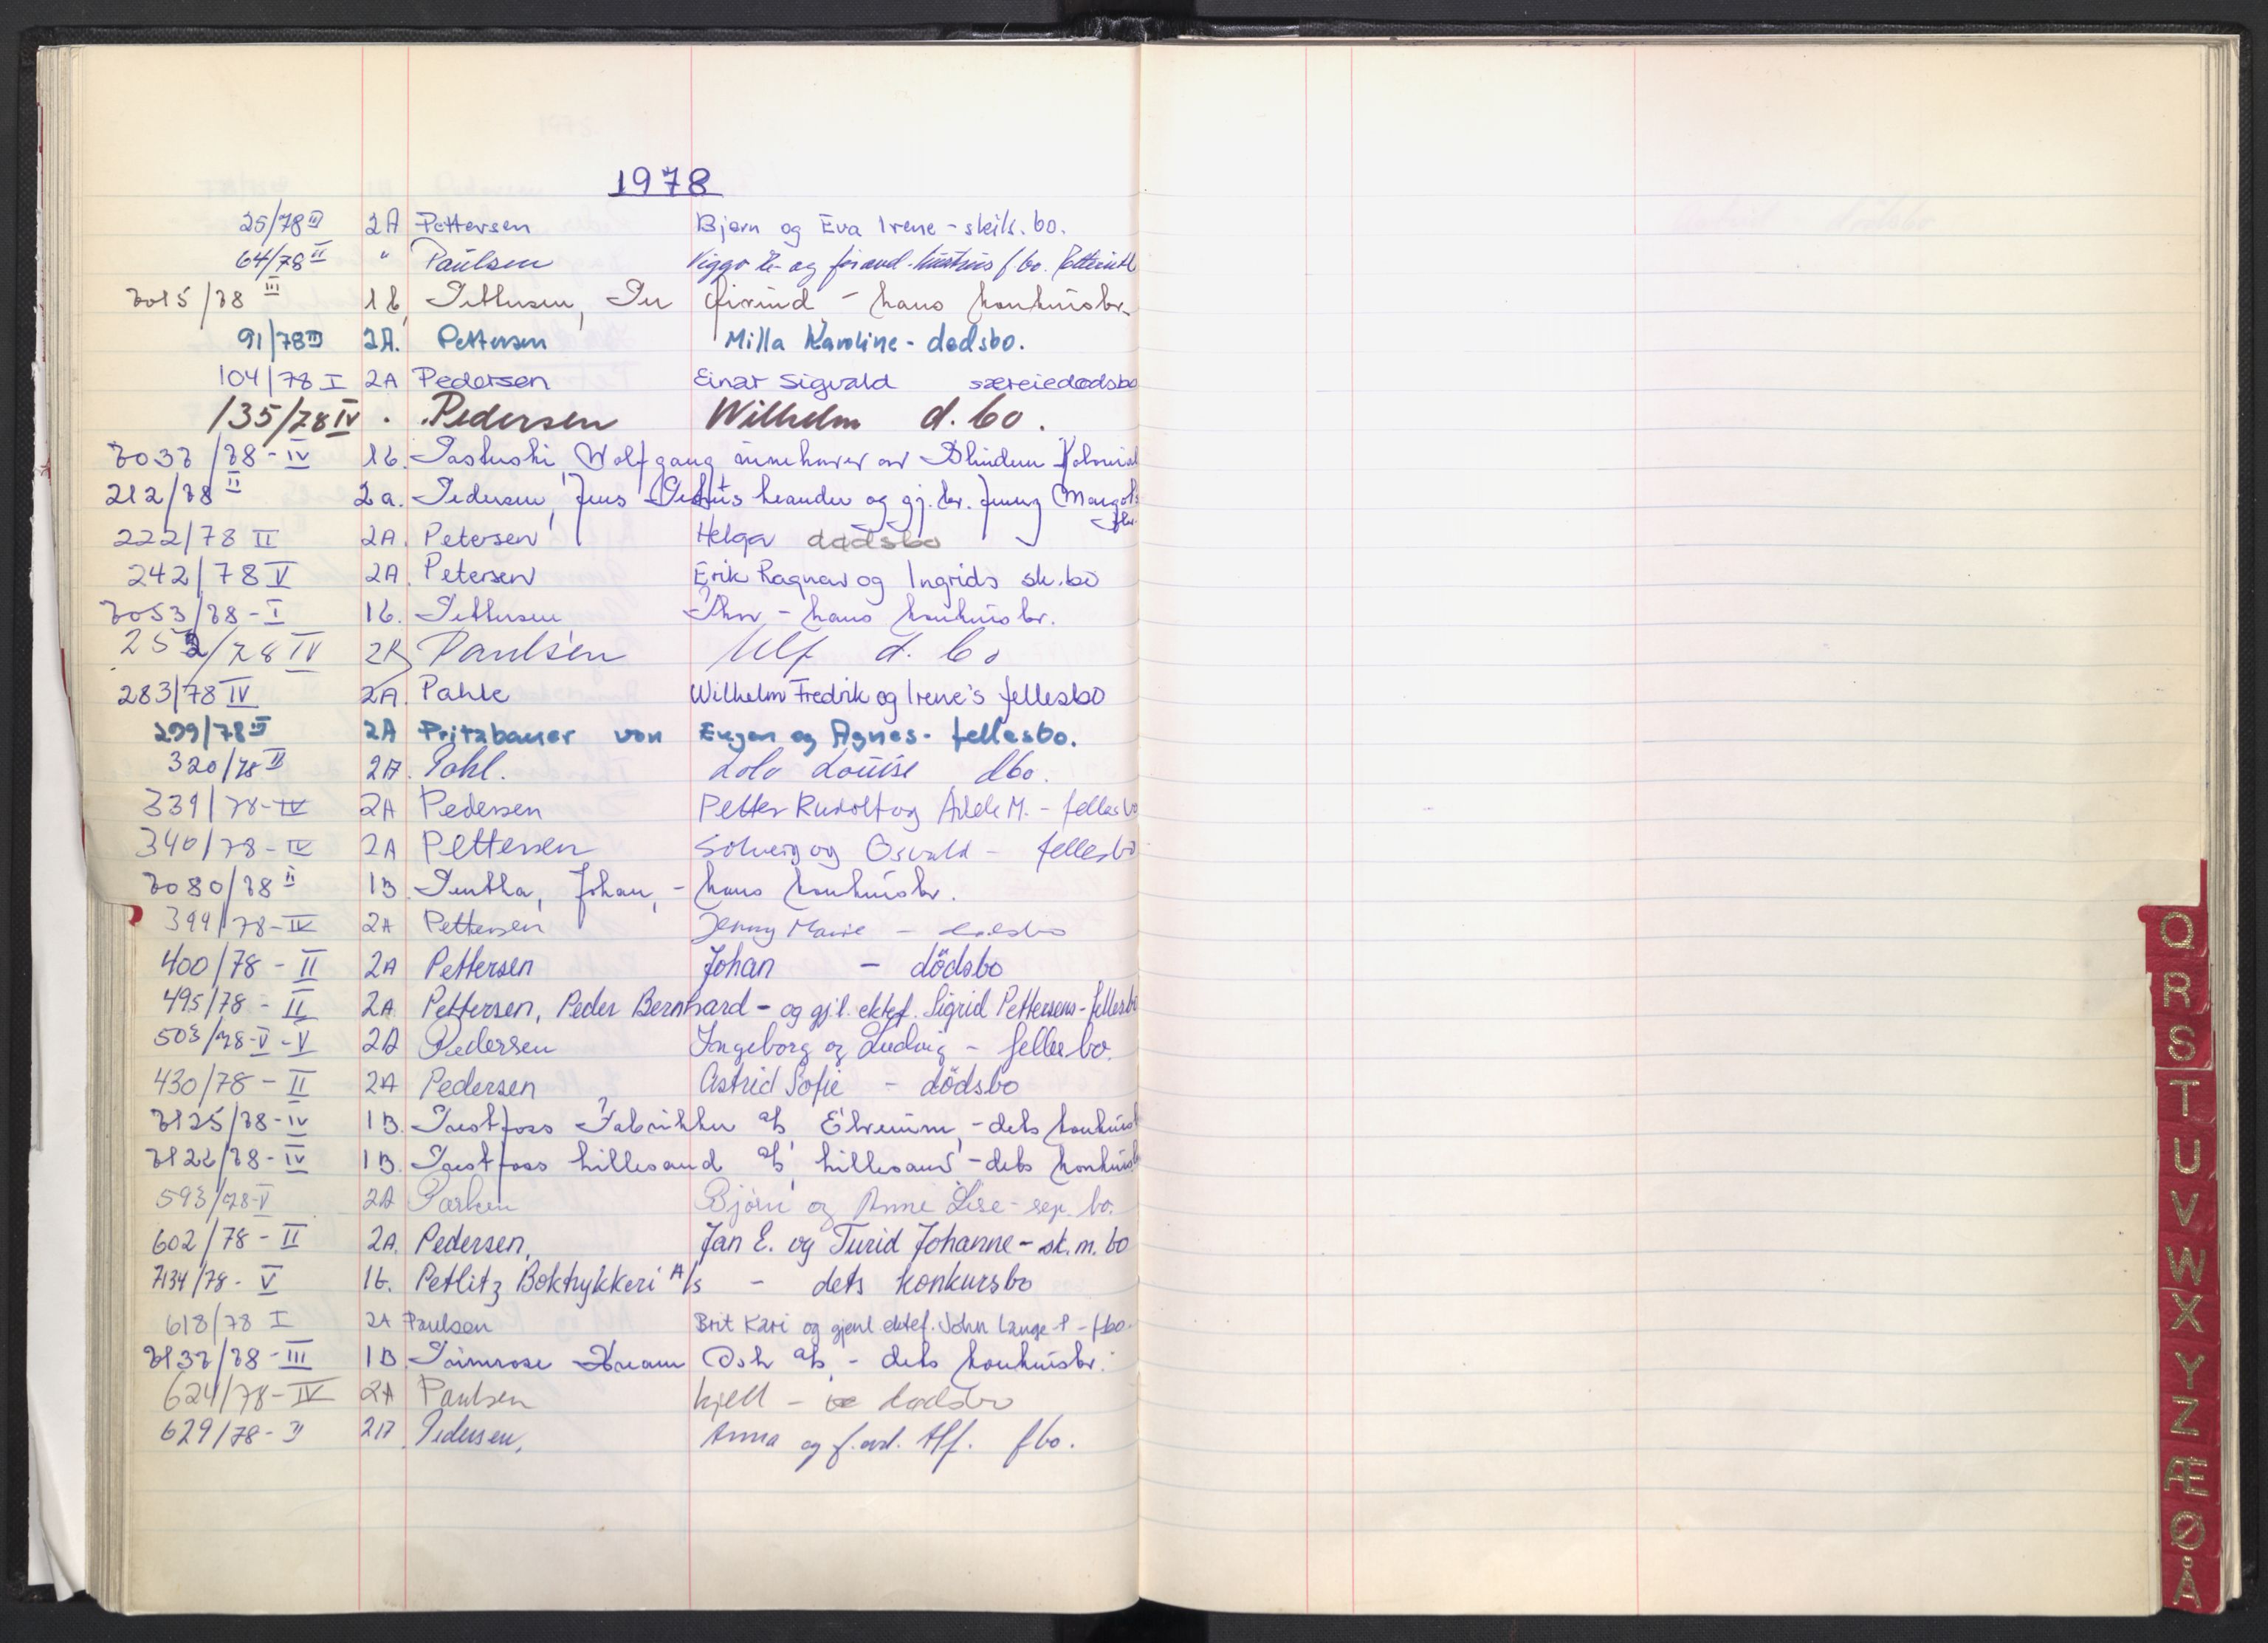 1978
25/78 III 2A Pettersen Bjørn og Eva Irene - skils. bo.
64/78 II " Paulsen Viggo E. og foravd. hustrus f bo.
7015/78 III 1b, Pettersen, Per Øivind - hans konkursbo.
91/78 III 2A. Pettersen Milla Karoline - dødsbo.
104/78 I 2A Pedersen Einar Sigvald særeiedødsbo
135/78 IV . Pedersen Wilhelm d. bo.
7037/78 - IV 1b. Wolfgang innehaver av Blindern Kolonial
212/78 II 2a. Pedersen, Jens Petrus Leander og gj.lev. Jenny Margot's
222/78 II 2A. Petersen Helga dødsbo
242/78 V 2A. Petersen Erik Ragnar og Ingrids sk.bo
7053/78 - I 1b. Pettersen Thor - hans konkursbo.
252/78 IV 2A Paulsen Ulf d. bo
283/78 IV 2A. Pahle Wilhelm Fredrik og Irene's fellesbo
299/78 II 2A Pritzbauer von Eugen og Agnes - fellesbo.
320/78 II 2A. Pohl. Lola Louise dbo.
339/78 - IV 2A Pedersen Petter Rudolf og Adele M. - fellesbo
340/78 - IV 2A Pettersen Solveig og Osvald - fellesbo
7080/78 II 1B. Johan, - hans konkursbo.
399/78 - IV 2A Pettersen Jenny Marie - dødsbo
400/78 - II 2A Pettersen Johan - dödsbo
495/78 - II 2A Pettersen, Peder Bernhard - og gj.l. ektef. Sigrid Pettersens - fellesbo
503/78-V - V 2A Pedersen Ingeborg og Ludvig - fellesbo.
430/78 - II 2A Pedersen Astrid Sofie - dödsbo
7125/78 - IV 1B. Prestfoss Fabrikker a/s Elverum, - dets konkursb
7122/78 - IV 1B. Prestfoss Lillesand a/s, Lillesand - dets konkursb
593/78-V 2A Parken Bjørn og Anne Lise - sep. bo.
602/78 - II 2A. Pedersen, Jan E. og Turid Johanne - sk. m. bo
7134/78 - V 1b. Petlitz Boktrykkeri A/s - dets konkursbo
618/78 I 2A Paulsen Brit Kari og gjenl ektef. John Lange P - fbo.
7137/78 - III 1B. Primrose Kream Oslo a/s, - dets konkursbo.
624/78 - IV 2A Paulsen Kjell - dødsbo
629/78 - II 2A Pedersen, Anna og f. avd. Alf. fbo.
Q
R
S
T
U
V
W
X
Y
Z
Æ
Ø
Å